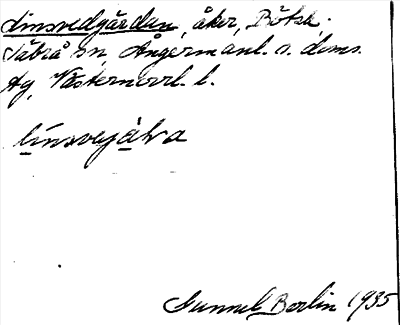 Linsvedgården, åker, Bölsk,
Säbrå sn, Ångermanl. s. doms.
Ag, Västernorrl. l.
línsvejàka
Gunnel Berlin 1935